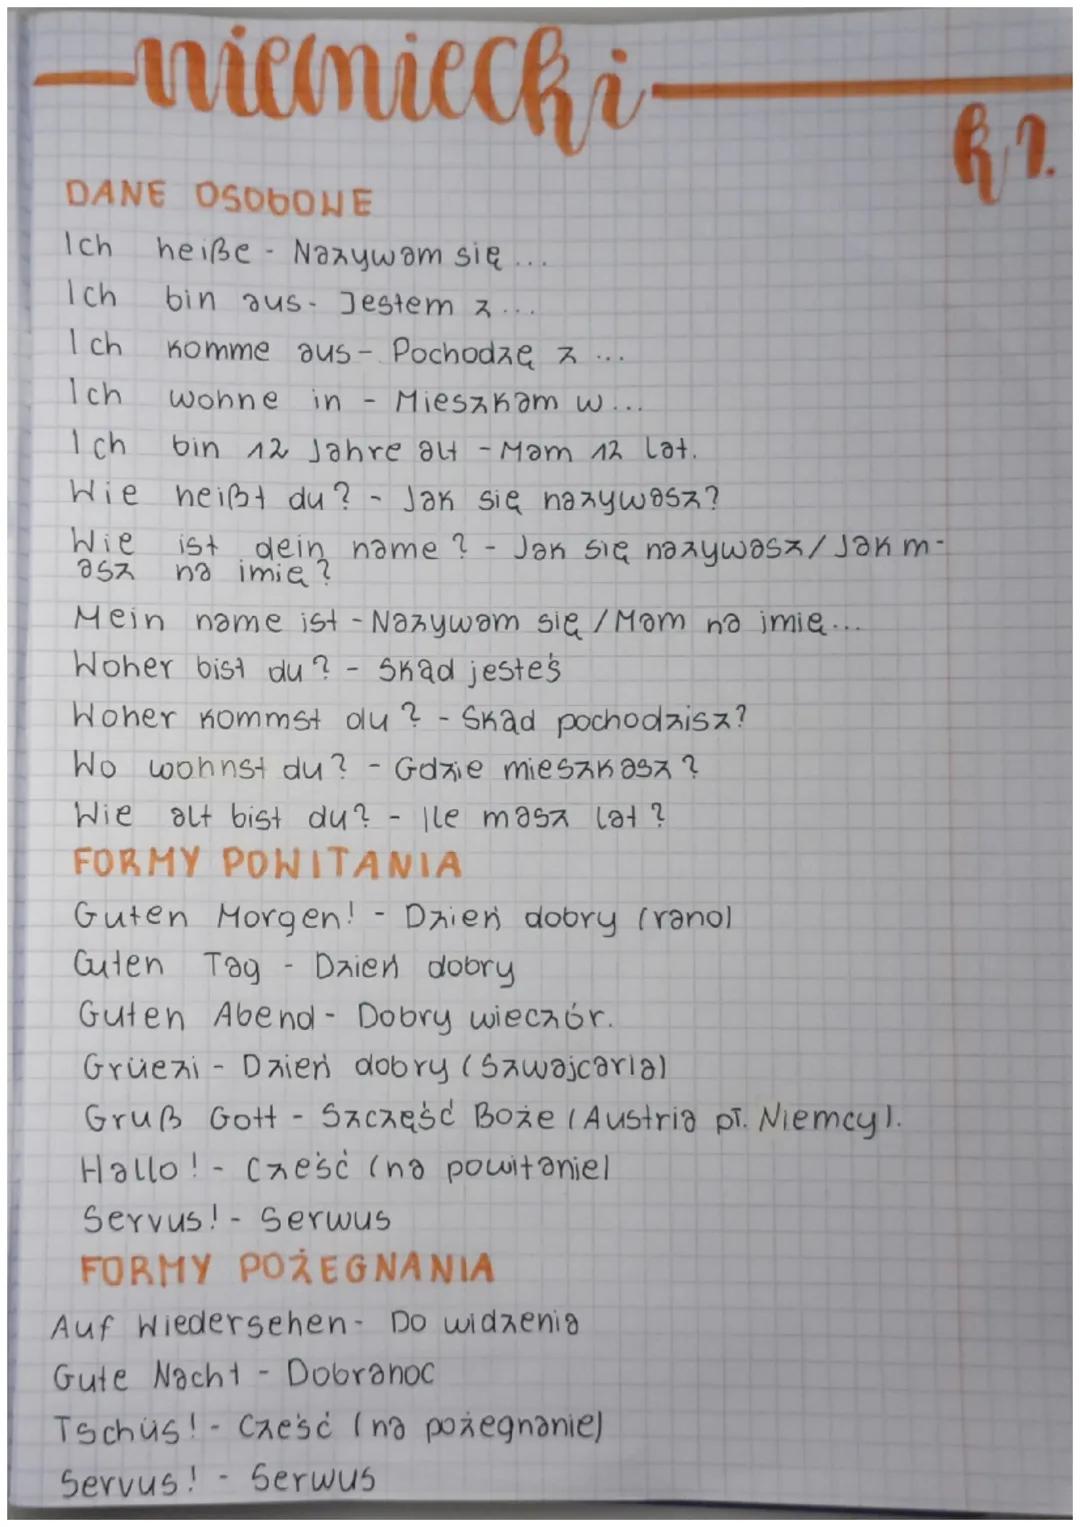 niemiecki
k 1.
DANE OSOBOWE
Ich heiße - Nazywam się ...
Ich bin aus - Jestem z ...
Ich komme aus - Pochodzę z ...
Ich wohne in - Mieszkam w ...
Ich bin 12 Jahre alt - Mam 12 lat.
Wie heißt du? - Jak się nazywasz?
Wie ist dein name? - Jak się nazywasz / Jak m-
asz na imię?
Mein name ist - Nazywam się / Mam na imię...
Woher bist du? - Skąd jesteś
Woher kommst du? - Skąd pochodzisz?
Wo wohnst du? - Gdzie mieszkasz?
Wie alt bist du? - Ile masz lat?
FORMY POWITANIA
Guten Morgen! - Dzień dobry (rano)
Guten Tag - Dzień dobry
Guten Abend - Dobry wieczór.
Grüezi - Dzień dobry (Szwajcaria)
Gruß Gott - Szczęść Boże (Austria pł. Niemcy).
Hallo! - Cześć (na powitanie)
Servus! - Serwus
FORMY POŻEGNANIA
Auf Wiedersehen - Do widzenia
Gute Nacht - Dobranoc
Tschüs! - Cześć (na pożegnanie)
Servus! - Serwus